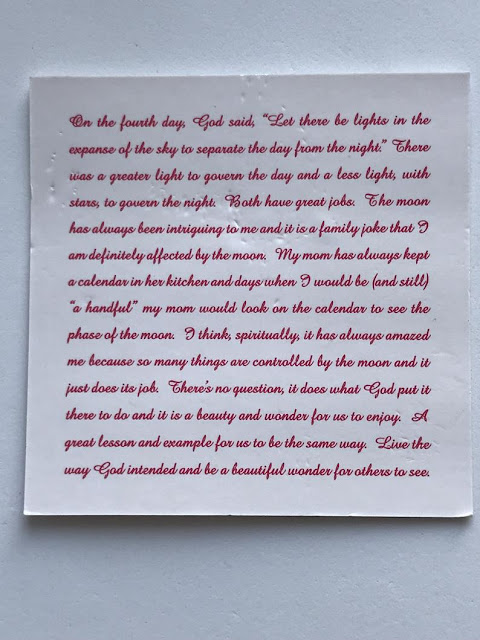 On the fourth day, God said, "Let there be lights in the
expanse of the sky to separate the day from the night." There
was a greater light to govern the day and a less light, with
stars, to govern the night. Both have great jobs. The moon
has always been intriguing to me and it is a family joke that I
am definitely affected by the moon. My mom has always kept
a calendar in her kitchen and days when I would be (and still)
"a handful" my mom would look on the calendar to see the
phase of the moon. I think, spiritually, it has always amazed
me because so many things are controlled by the moon and it
just does its job. There's no question, it does what God put it
there to do and it is a beauty and wonder for us to enjoy. A
great lesson and example for us to be the same way. Live the
way God intended and be a beautiful wonder for others to see.